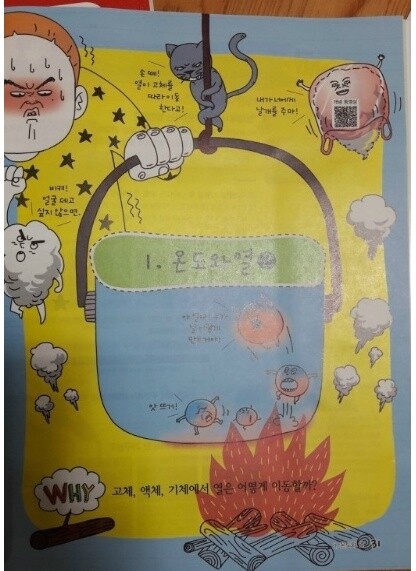 손 떼!
열이 고체를
따라 이동
한다고!
내가 너에게
날개를 주마!
개념 동영상
비켜!
얼굴 데고
싶지 않으면.
1. 온도와 열
앗 뜨거!
WHY
고체, 액체, 기체에서 열은 어떻게 이동할까?
31